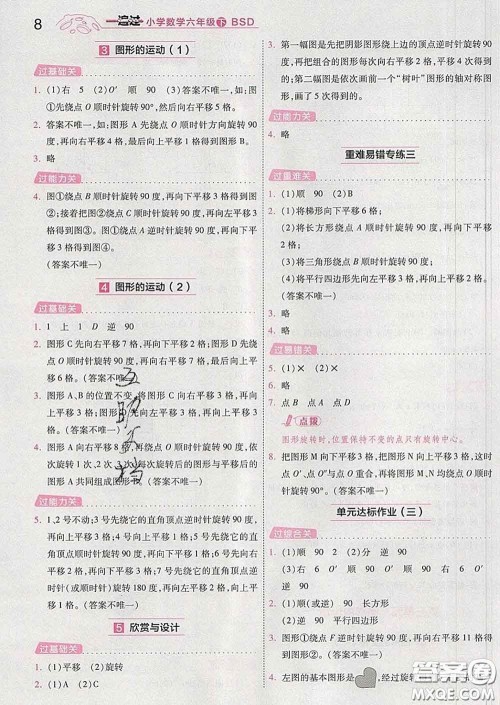 8 一遍过 小学数学六年级下 BSD
3 图形的运动（1）
过基础关
1. （1）右 5 （2）90 （3）（答案不唯一，如：图
①先绕点 O 顺时针旋转 90°，然后向右平移 5 格。
2. 答案不唯一，如：图形 A 先绕点 O 顺时针方向旋转 90
度，再向右平移 4 格，最后向上平移 1 格得到图形 B。
3. 略
过能力关
4. 图①绕点 B 顺时针旋转 90 度，再向下平移 3 格得到图
②；接着把图②绕点 O 顺时针旋转 90 度，再向左平移 3
格得到图③。图①绕点 A 逆时针旋转 90 度，再向下平
移 3 格得到图④。
（答案不唯一）
4 图形的运动（2）
过基础关
1. 1 上 1 D 逆 90
2. 图形 C 先向右平移 3 格，再向下平移 5 格；图形 D 先绕
点 O 顺时针旋转 90 度，再向右平移 7 格，最后向上平
移 6 格。（答案不唯一）
3. 图形 A、B 的位置不变，将图形 C 向右平移 3 格，图形 D
向右平移 3 格，再向上平移 3 格。（答案不唯一）
4. 图形 A 向右平移 8 格，再向下平移 2 格后，绕点 O
依次旋转 1 次、2 次、3 次，旋转后的图形与平移后的
图形 A 共同组成图形 。（答案不唯一）
过能力关
5. 1、2 号不动；3 号先绕它的直角顶点逆时针旋转 90 度，
再向上平移 1 格，最后向右平移 1 格；4 号先绕它的直
角顶点顺时针旋转 90 度；5 号先绕它的直角顶点逆时
针（或顺时针）旋转 180 度，再向右平移 1 格，向上平移
1 格。（答案不唯一）
5 欣赏与设计
过基础关
1. （1）平移 （2）旋转
2. （1）A （2）C
3. 第一幅图是先把阴影图形绕上边的顶点逆时针旋转 90
度，再将旋转后的图形依次向右平移 4 格，平移 4 次得
到的；第二幅图是依次画前一个“树叶”图形的轴对称图
形，画了 5 次得到的。
过能力关
4. 略
重难易错专练三
过重难关
1. （1）顺 90 （2）B
2. （1）将梯形向下平移 6 格；
（2）将长方形绕点 A 顺时针旋转 90 度，再向下平移 2
格；
（3）将三角形绕点 B 顺时针旋转 90 度；
（4）将平行四边形先向左平移 1 格，再向下平移 3 格。
（答案不唯一）
3. 略
4. 略
过易错关
5. （1）× （2）×
6. √
7. 点 B 点 A 点 D
点拨
图形旋转时，位置保持不变的点只有旋转中心。
8. 把图形 M 向右平移 3 格，图形 N 向左平移 3 格，这时
点 O′、点 O″与点 O 重合，再将图形 M、N 均绕点 O 顺时
针旋转 90 度。
单元达标作业（三）
过综合关
1. （1）顺 90 （2）分 逆 90
（3）右 6 O′ 顺 90 右 6 O′
顺 90
2. （1）顺（或逆） 90 长方形
（2）逆 90 长方形
3. 图形①先绕点 F 逆时针旋转 90 度，再向右平移 11 格得
到图形②。（答案不唯一）
4. 左图的基本图形是 ，经过旋转
互助互档
答案圈
MXQE.COM